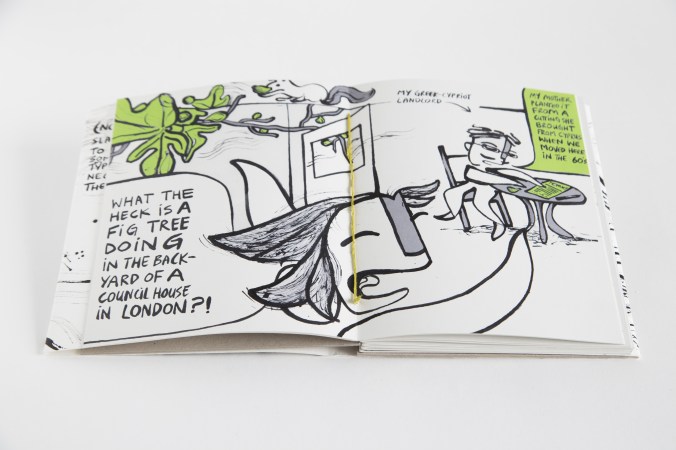 TO
TYP
NEC
THE
WHAT THE
HECK IS A
FIG TREE
DOING
IN THE BACK-
YARD OF A
COUNCIL HOUSE
IN LONDON?!
MY GREEK-CYPRIOT
LANDLORD
MY MOTHER
PLANTED IT
FROM A
CUTTING SHE
BROUGHT
FROM CYPRUS
WHEN WE
MOVED HERE
IN THE 60s